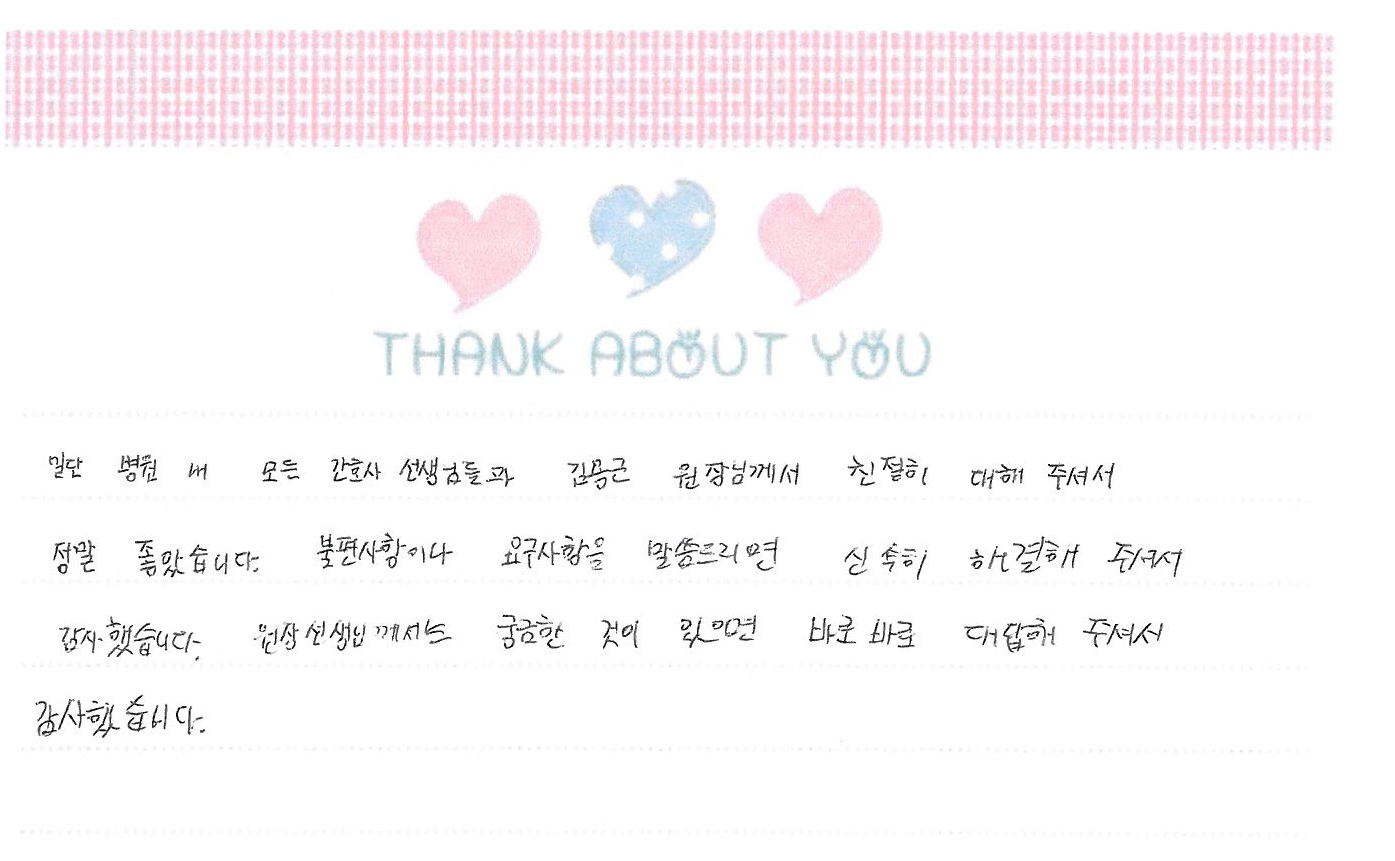 THANK ABOUT YOU
일단 병원 내 모든 간호사 선생님들과 김용근 원장님께서 친절히 대해 주셔서
정말 좋았습니다. 불편사항이나 요구사항을 말씀드리면 신속히 해결해 주셔서
감사했습니다. 원장선생님께서는 궁금한 것이 있으면 바로바로 대답해 주셔서
감사했습니다.